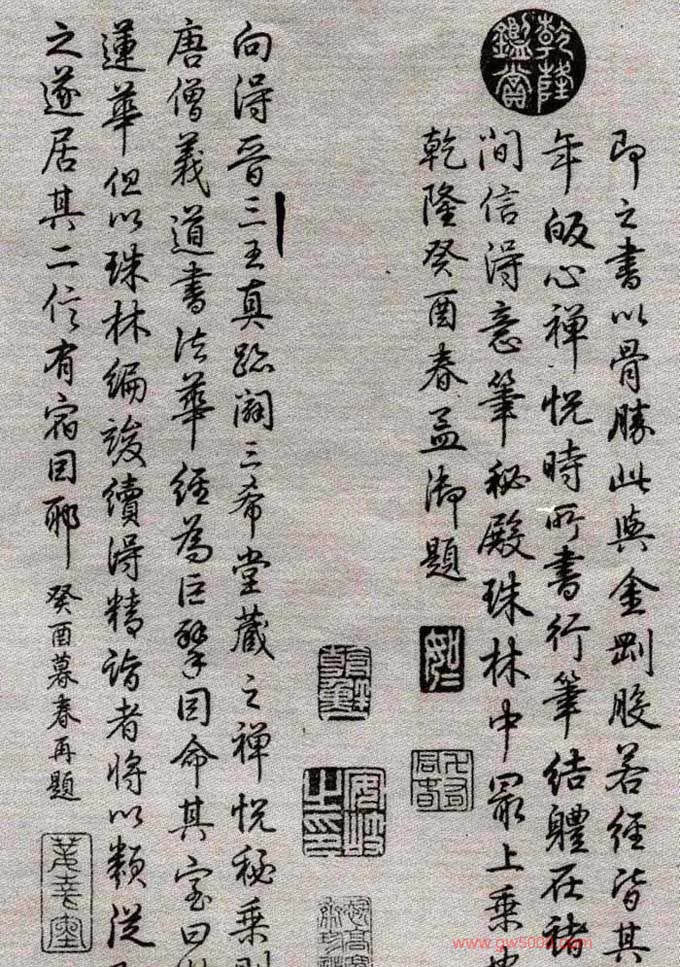 乾隆鑑賞
即之書以骨勝此與金剛般若經皆其
年皈心禪悅時所書行筆結體在諸
間信得意筆秘殿珠林中最上乘
乾隆癸酉春孟御題
安岐之印
向得晉三王真跡闢三希堂藏之禪悅秘乘則
唐僧義道書法華經為巨擘因命其室曰
蓮華但以珠林編竣續得精詣者將以類從
之遂居其二信有宿因耶癸酉暮春再題